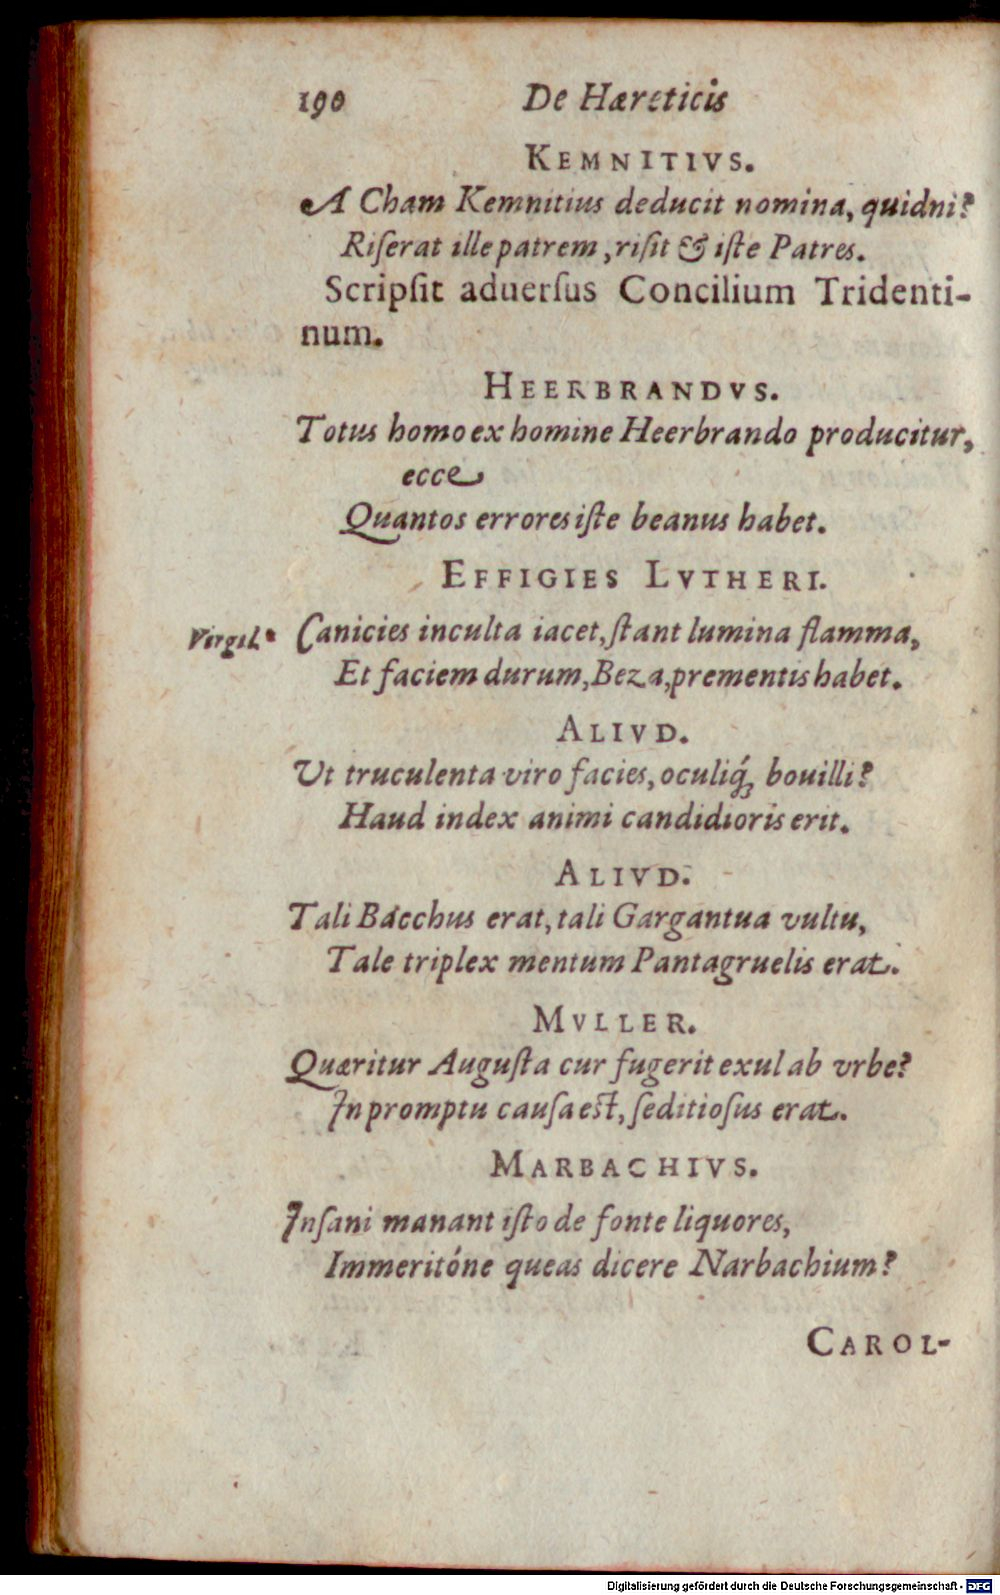 190 De Hæreticis
KEMNITIVS.
A Cham Kemnitius deducit nomina, quidni?
Riſerat ille patrem, riſit & iſte Patres.
Scripſit aduerſus Concilium Tridenti-
num.
HEERBRANDVS.
Totus homo ex homine Heerbrando producitur,
ecce
Quantos errores iſte beanus habet.
EFFIGIES LVTHERI.
Virgil. Canicies inculta iacet, ſtant lumina flamma,
Et faciem durum, Beza, prementis habet.
ALIVD.
Vt truculenta viro facies, oculiq́ꝫ bouilli?
Haud index animi candidioris erit.
ALIVD.
Tali Bacchus erat, tali Gargantua vultu,
Tale triplex mentum Pantagruelis erat.
MVLLER.
Quæritur Auguſta cur fugerit exul ab vrbe?
In promptu cauſa eſt, ſeditioſus erat.
MARBACHIVS.
Inſani manant iſto de fonte liquores,
Immeritóne queas dicere Narbachium?
CAROL-
Digitalisierung gefördert durch die Deutsche Forschungsgemeinschaft - DFG